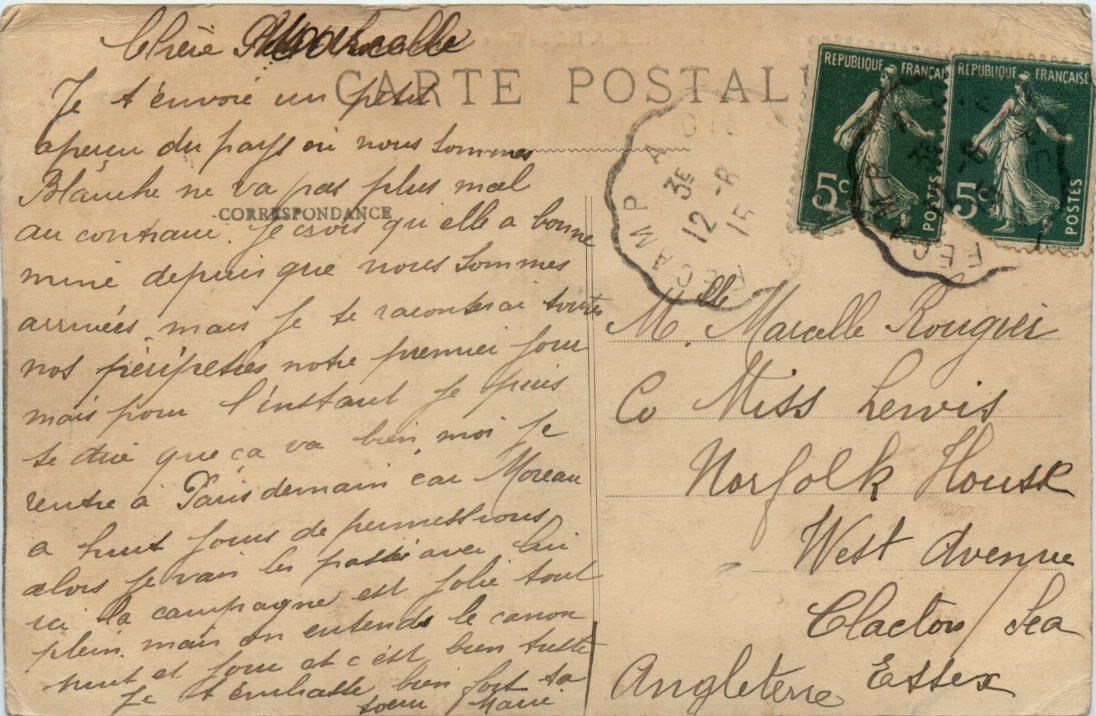 Chère Marcelle
CARTE POSTALE
Je t'envoie un petit
aperçu du pays où nous sommes
Blanche ne va pas plus mal
CORRESPONDANCE
au contraire. Je crois qu'elle a bonne
mine depuis que nous sommes
arrivées, mais je te raconterai toutes
nos péripéties notre premier jour
mais pour l'instant je puis
te dire que ça va bien moi je
rentre à Paris demain car Moreau
a huit jours de permissions
alors je vais les passé avec lui
ici la campagne est jolie tout
plein. mais on entends le canon
nuit et jour et c'est bien triste
Je t'embrasse bien fort ta
soeur Marie
REPUBLIQUE FRANÇAISE
5c
POSTES
REPUBLIQUE FRANÇAISE
5c
POSTES
FECAMP A
3E
12 -8
15
FEC MP
M.lle Marcelle Rougier
Co Miss Lewis
Norfolk House
West Avenue
Clacton/Sea
Essex
Angleterre